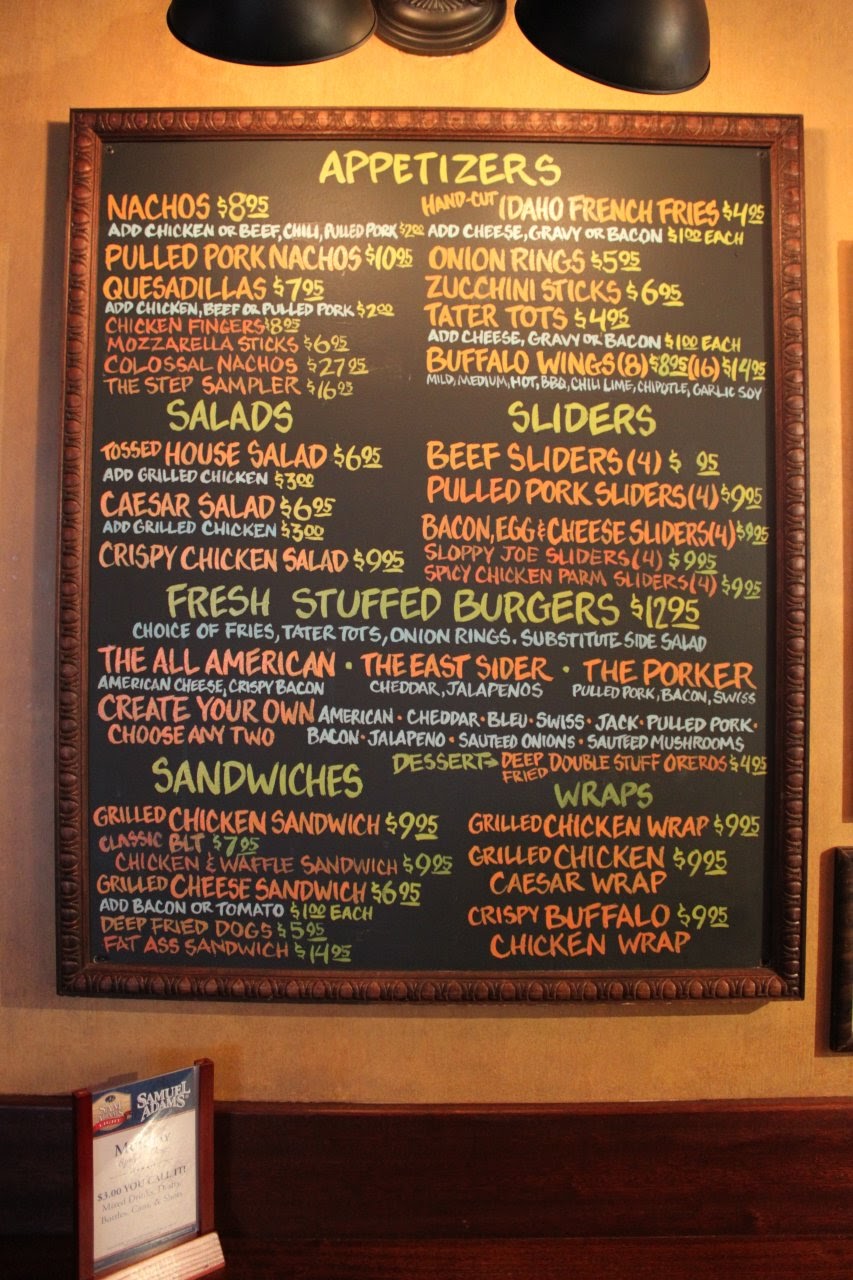 APPETIZERS
NACHOS $8.95
ADD CHICKEN OR BEEF, CHILI, PULLED PORK $2.00
PULLED PORK NACHOS $10.95
QUESADILLAS $7.95
ADD CHICKEN, BEEF OR PULLED PORK $2.00
CHICKEN FINGERS $8.95
MOZZARELLA STICKS $6.95
COLOSSAL NACHOS $27.95
THE STEP SAMPLER $16.95
HAND-CUT IDAHO FRENCH FRIES $4.95
ADD CHEESE, GRAVY OR BACON $1.00 EACH
ONION RINGS $5.95
ZUCCHINI STICKS $6.95
TATER TOTS $4.95
ADD CHEESE, GRAVY OR BACON $1.00 EACH
BUFFALO WINGS (8) $8.95 (16) $14.95
MILD, MEDIUM, HOT, BBQ, CHILI LIME, CHIPOTLE, GARLIC SOY
SALADS
TOSSED HOUSE SALAD $6.95
ADD GRILLED CHICKEN $3.00
CAESAR SALAD $6.95
ADD GRILLED CHICKEN $3.00
CRISPY CHICKEN SALAD $9.95
SLIDERS
BEEF SLIDERS (4) $ 95
PULLED PORK SLIDERS (4) $9.95
BACON, EGG & CHEESE SLIDERS (4) $9.95
SLOPPY JOE SLIDERS (4) $9.95
SPICY CHICKEN PARM SLIDERS (4) $9.95
FRESH STUFFED BURGERS $12.95
CHOICE OF FRIES, TATER TOTS, ONION RINGS. SUBSTITUTE SIDE SALAD
THE ALL AMERICAN · THE EAST SIDER · THE PORKER
AMERICAN CHEESE, CRISPY BACON CHEDDAR, JALAPENOS PULLED PORK, BACON, SWISS
CREATE YOUR OWN AMERICAN · CHEDDAR · BLEU · SWISS · JACK · PULLED PORK ·
CHOOSE ANY TWO BACON · JALAPENO · SAUTEED ONIONS · SAUTEED MUSHROOMS
DESSERT → DEEP FRIED DOUBLE STUFF OREROS $4.95
SANDWICHES
GRILLED CHICKEN SANDWICH $9.95
CLASSIC BLT $7.95
CHICKEN & WAFFLE SANDWICH $9.95
GRILLED CHEESE SANDWICH $6.95
ADD BACON OR TOMATO $1.00 EACH
DEEP FRIED DOGS $5.95
FAT ASS SANDWICH $14.95
WRAPS
GRILLED CHICKEN WRAP $9.95
GRILLED CHICKEN $9.95
CAESAR WRAP
CRISPY BUFFALO $9.95
CHICKEN WRAP
SAMUEL ADAMS
$3.00 YOU CALL IT!
Mixed Drinks, Drafts,
Bottles, Cans, & Shots